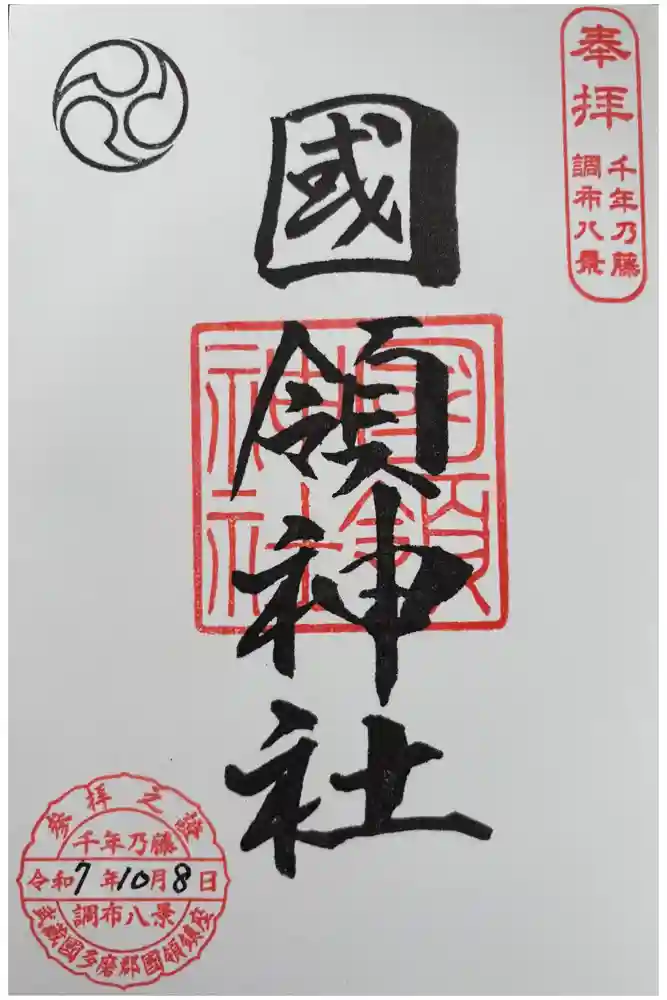 奉拝
千年乃藤
調布八景
國領神社
國領神社
参拝之証
千年乃藤
令和7年10月8日
調布八景
武蔵國多磨郡國領鎮座